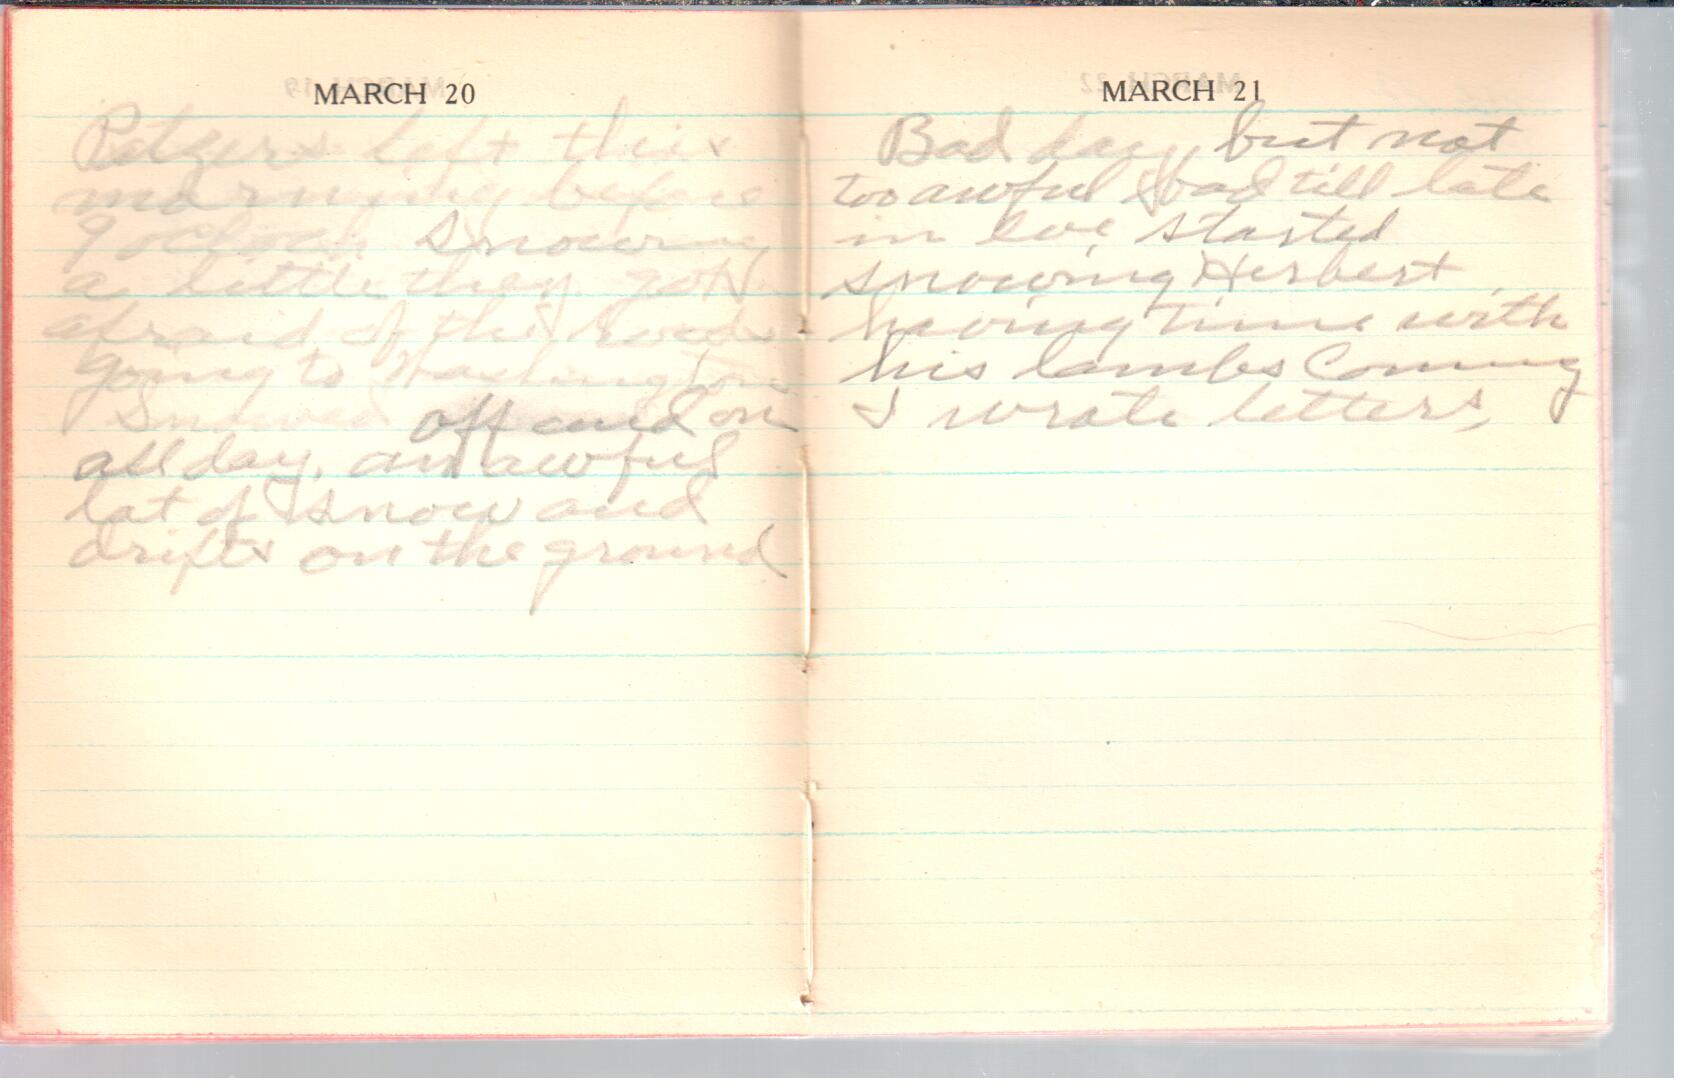 MARCH 20
Petzers left this
morning before
9 oclock Snowing
a little they got
afraid of the roads
going to Washington
Snowed off and on
all day, an awful
lot of snow and
drifts on the ground
MARCH 21
Bad day but not
too awful bad till late
in eve, started
snowing Herbert
having time with
his lambs Coming
I wrote letters,